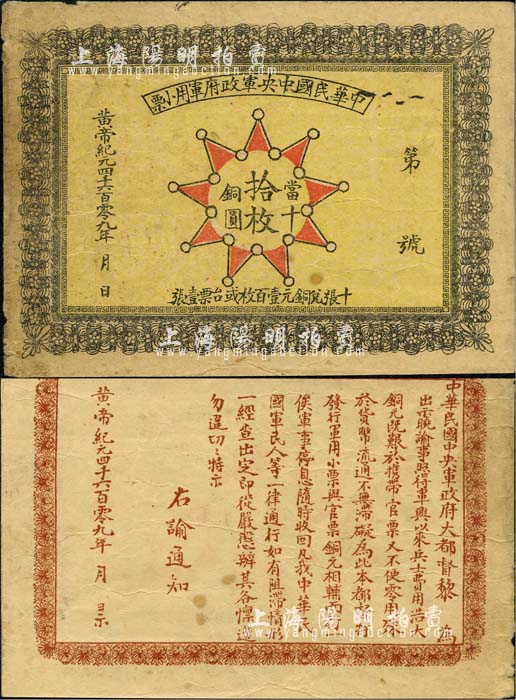 上海陽明拍賣
www.yangmingauction.com
中華民國中央軍政府軍用小票
第 號
當十
拾枚
銅圓
黃帝紀元四千六百零九年 月 日
十張院銅元壹百枚或台票壹張
上海陽明拍賣
www.yangmingauction.com
中華民國中央軍政府大都督黎 為
出示曉諭事照得軍興以來兵士費用浩大
銅元既艱於攜帶官票又不便零用
於貨幣流通不無滯礙為此本都督
發行軍用小票與官票銅元相輔而
俟軍事停息隨時收回凡我中華
國軍民人等一律通行如有阻滯情形
一經查出定即從嚴懲辦其各懍遵
勿違切切特示
右諭通知
黃帝紀元四千六百零九年 月 日示
上海陽明拍賣
www.yangmingauction.com